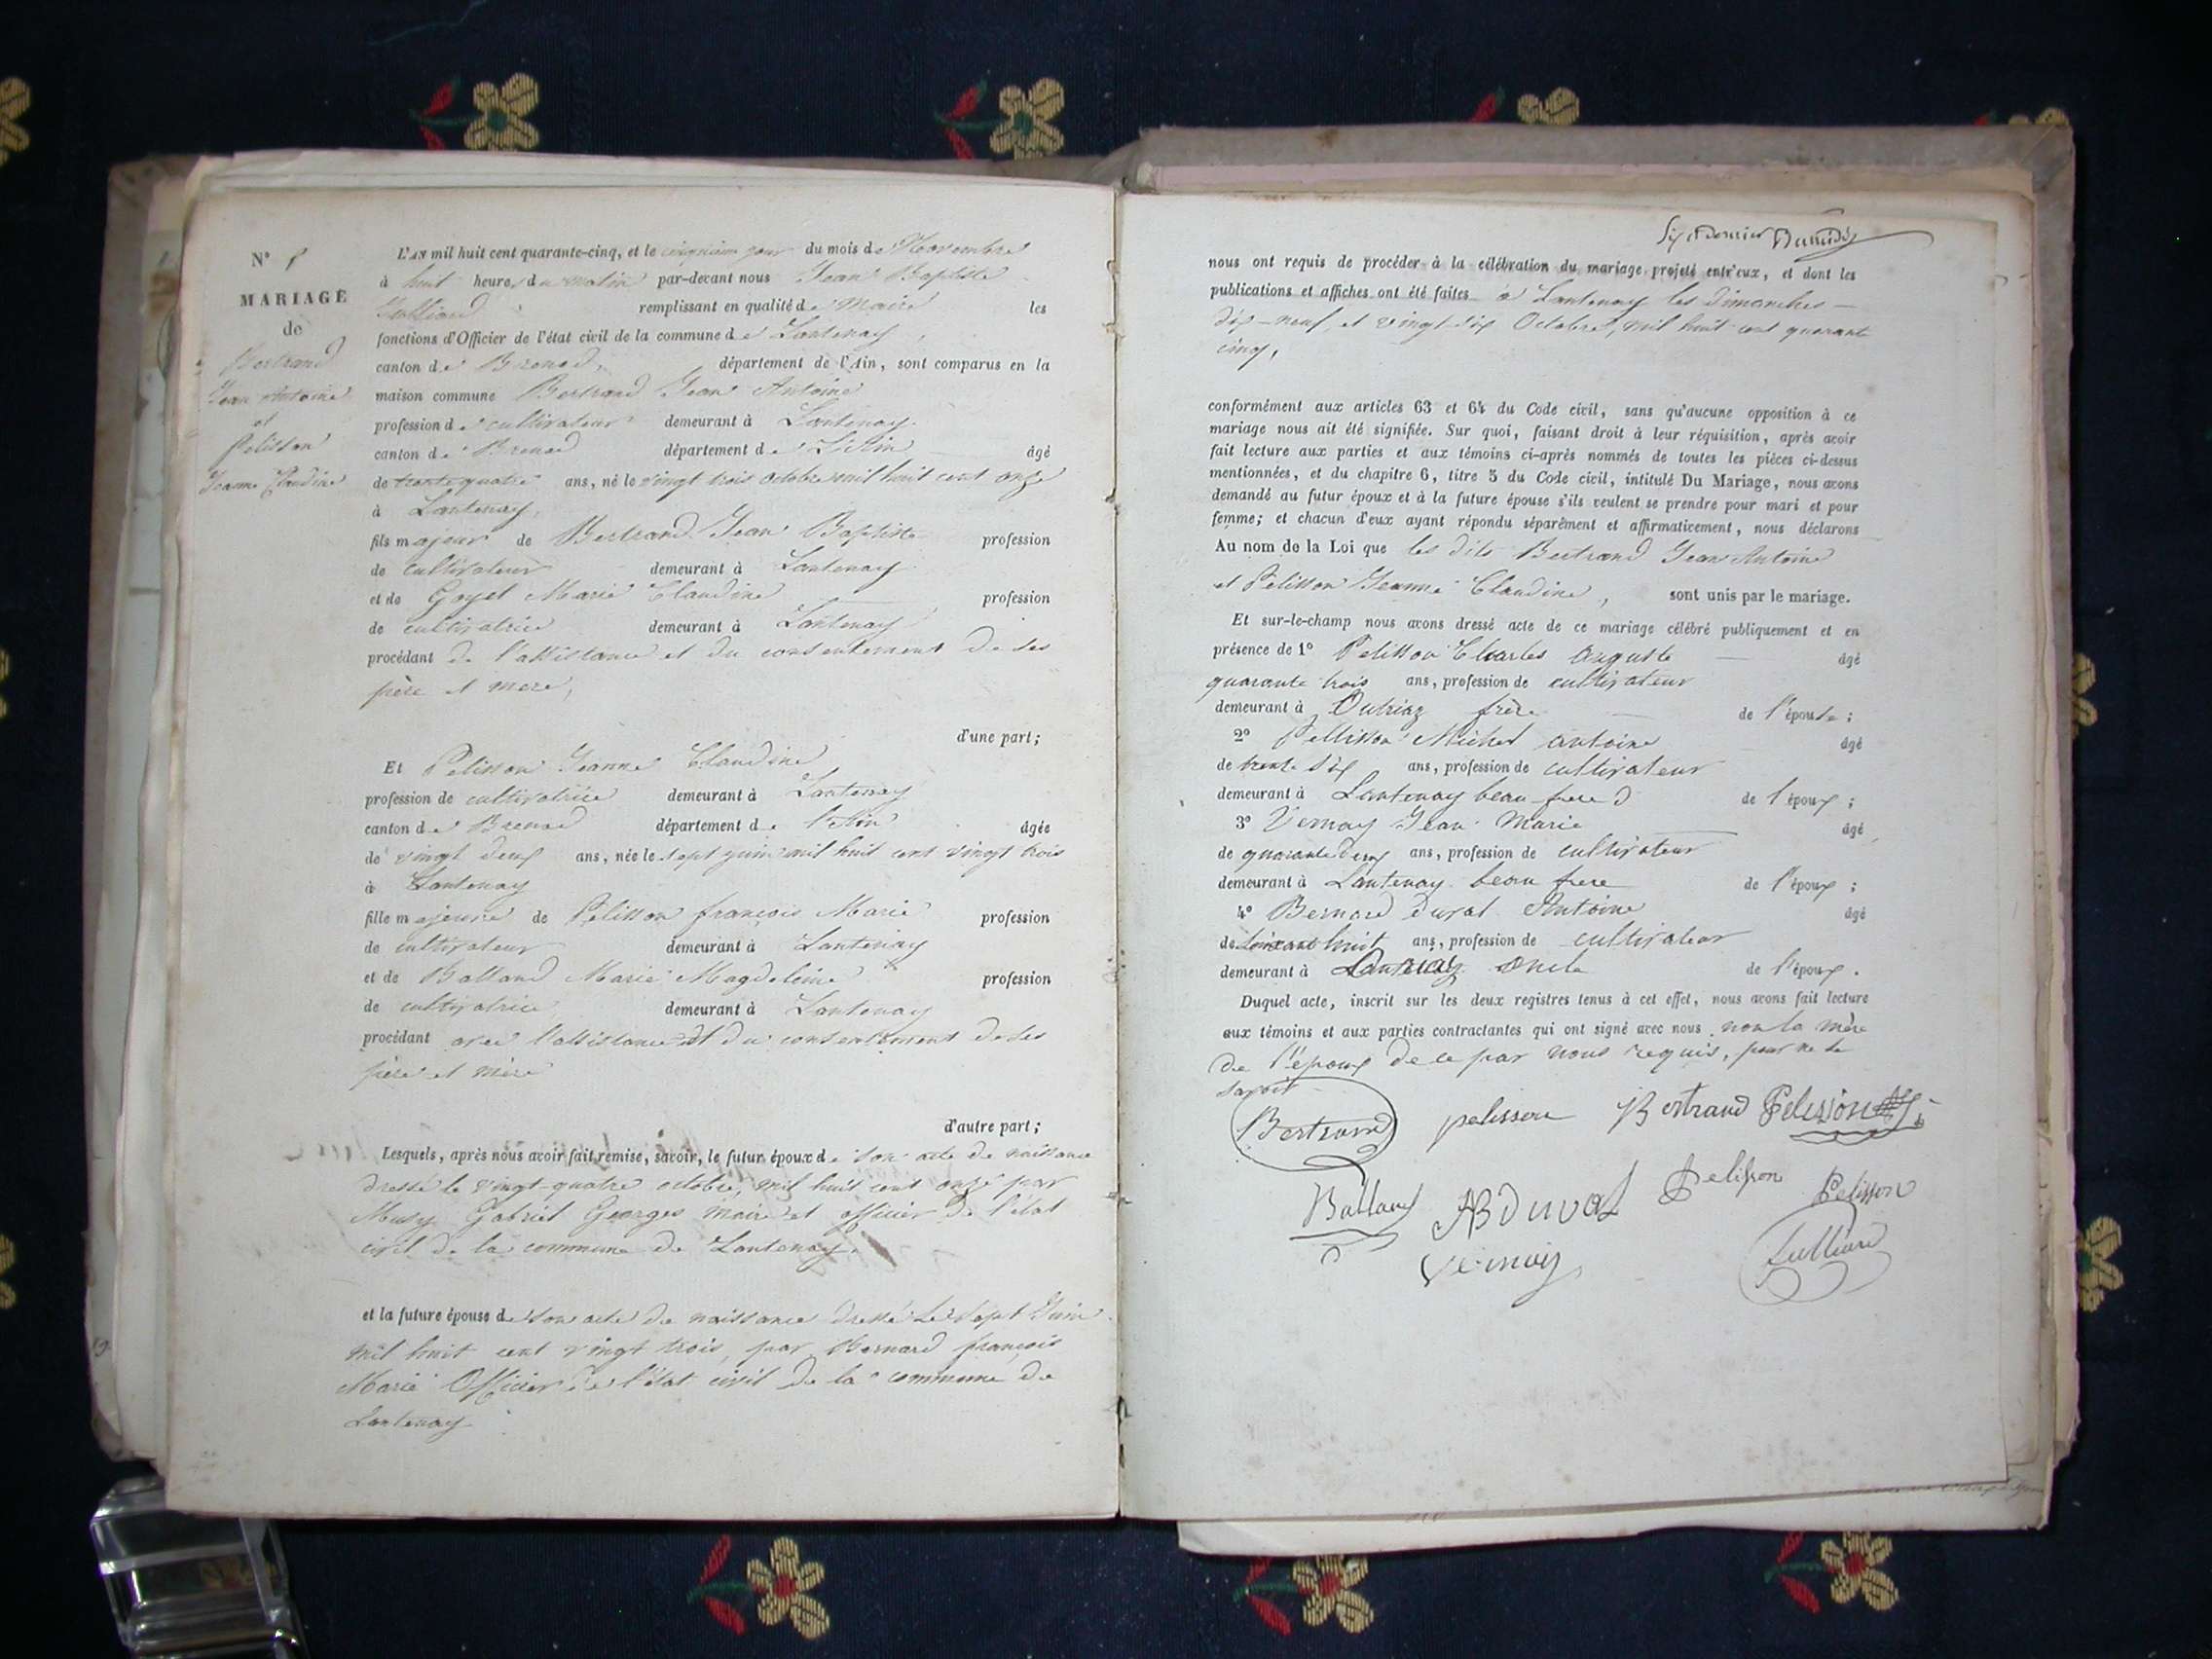 N°
MARIAGE
de
Bertrand
Jean Antoine
et
Pelisson
Jeanne Claudine
L'AN mil huit cent quarante-cinq, et le cinquième jour du mois de Novembre
à huit heures du matin par-devant nous Jean Baptiste
Julliard remplissant en qualité de Maire les
fonctions d'Officier de l'état civil de la commune de Lantenay,
canton de Brenod, département de l'Ain, sont comparus en la
maison commune Bertrand Jean Antoine
profession de cultivateur demeurant à Lantenay
canton de Brenod département de L'Ain âgé
de trente quatre ans, né le vingt trois octobre mil huit cent onze
à Lantenay,
fils majeur de Bertrand Jean Baptiste profession
de cultivateur demeurant à Lantenay
et de Goyet Marie Claudine profession
de cultivatrice demeurant à Lantenay
procédant de l'assistance et du consentement de ses
père et mère,
d'une part;
Et Pelisson Jeanne Claudine
profession de cultivatrice demeurant à Lantenay
canton de Brenod département de l'Ain âgée
de vingt deux ans, née le sept juin mil huit cent vingt trois
à Lantenay
fille majeure de Pelisson françois Marie profession
de cultivateur demeurant à Lantenay
et de Balland Marie Magdeleine profession
de cultivatrice demeurant à Lantenay
procédant avec l'assistance et du consentement de ses
père et mère
d'autre part;
Lesquels, après nous avoir fait remise, savoir, le futur époux de son acte de naissance
dressé le vingt-quatre octobre, mil huit cent onze par
Musy Gabriel Georges maire et officier de l'état
civil de la commune de Lantenay.
et la future épouse de son acte de naissance dressé le sept Juin
mil huit cent vingt trois, par Bernard françois
Marie Officier de l'état civil de la commune de
Lantenay
nous ont requis de procéder à la célébration du mariage projeté entr'eux, et dont les
publications et affiches ont été faites à Lantenay les dimanches
dix-neuf, et vingt-six Octobre, mil huit cent quarante
cinq,
conformément aux articles 63 et 64 du Code civil, sans qu'aucune opposition à ce
mariage nous ait été signifiée. Sur quoi, faisant droit à leur réquisition, après avoir
fait lecture aux parties et aux témoins ci-après nommés de toutes les pièces ci-dessus
mentionnées, et du chapitre 6, titre 5 du Code civil, intitulé Du Mariage, nous avons
demandé au futur époux et à la future épouse s'ils veulent se prendre pour mari et pour
femme; et chacun d'eux ayant répondu séparément et affirmativement, nous déclarons
Au nom de la Loi que les dits Bertrand Jean Antoine
et Pelisson Jeanne Claudine, sont unis par le mariage.
Et sur-le-champ nous avons dressé acte de ce mariage célébré publiquement et en
présence de 1° Pelisson Charles Auguste âgé
quarante trois ans, profession de cultivateur
demeurant à Outriaz frère de l'épouse;
2° Pellisson Michel Antoine âgé
de trente six ans, profession de cultivateur
demeurant à Lantenay beau frere de l'époux;
3° Vernay Jean Marie âgé
de quarante deux ans, profession de cultivateur
demeurant à Lantenay beau frere de l'époux;
4° Bernard Duval Antoine âgé
de soixante huit ans, profession de cultivateur
demeurant à Lantenay oncle de l'époux.
Duquel acte, inscrit sur les deux registres tenus à cet effet, nous avons fait lecture
aux témoins et aux parties contractantes qui ont signé avec nous non la mère
de l'époux de ce par nous requis, pour ne le
savoir
Bertrand pelisson Bertrand Pelisson
Balland ABDuval Pelisson Pelisson
Vernay Julliard